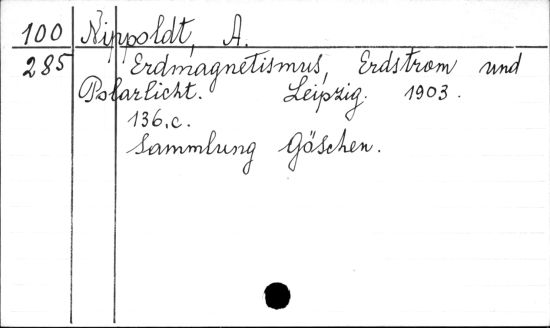 100 Nippoldt, A.
285 Erdmagnetismus, Erdstrom und
Polarlicht. Leipzig. 1903.
136, c.
Sammlung Göschen.